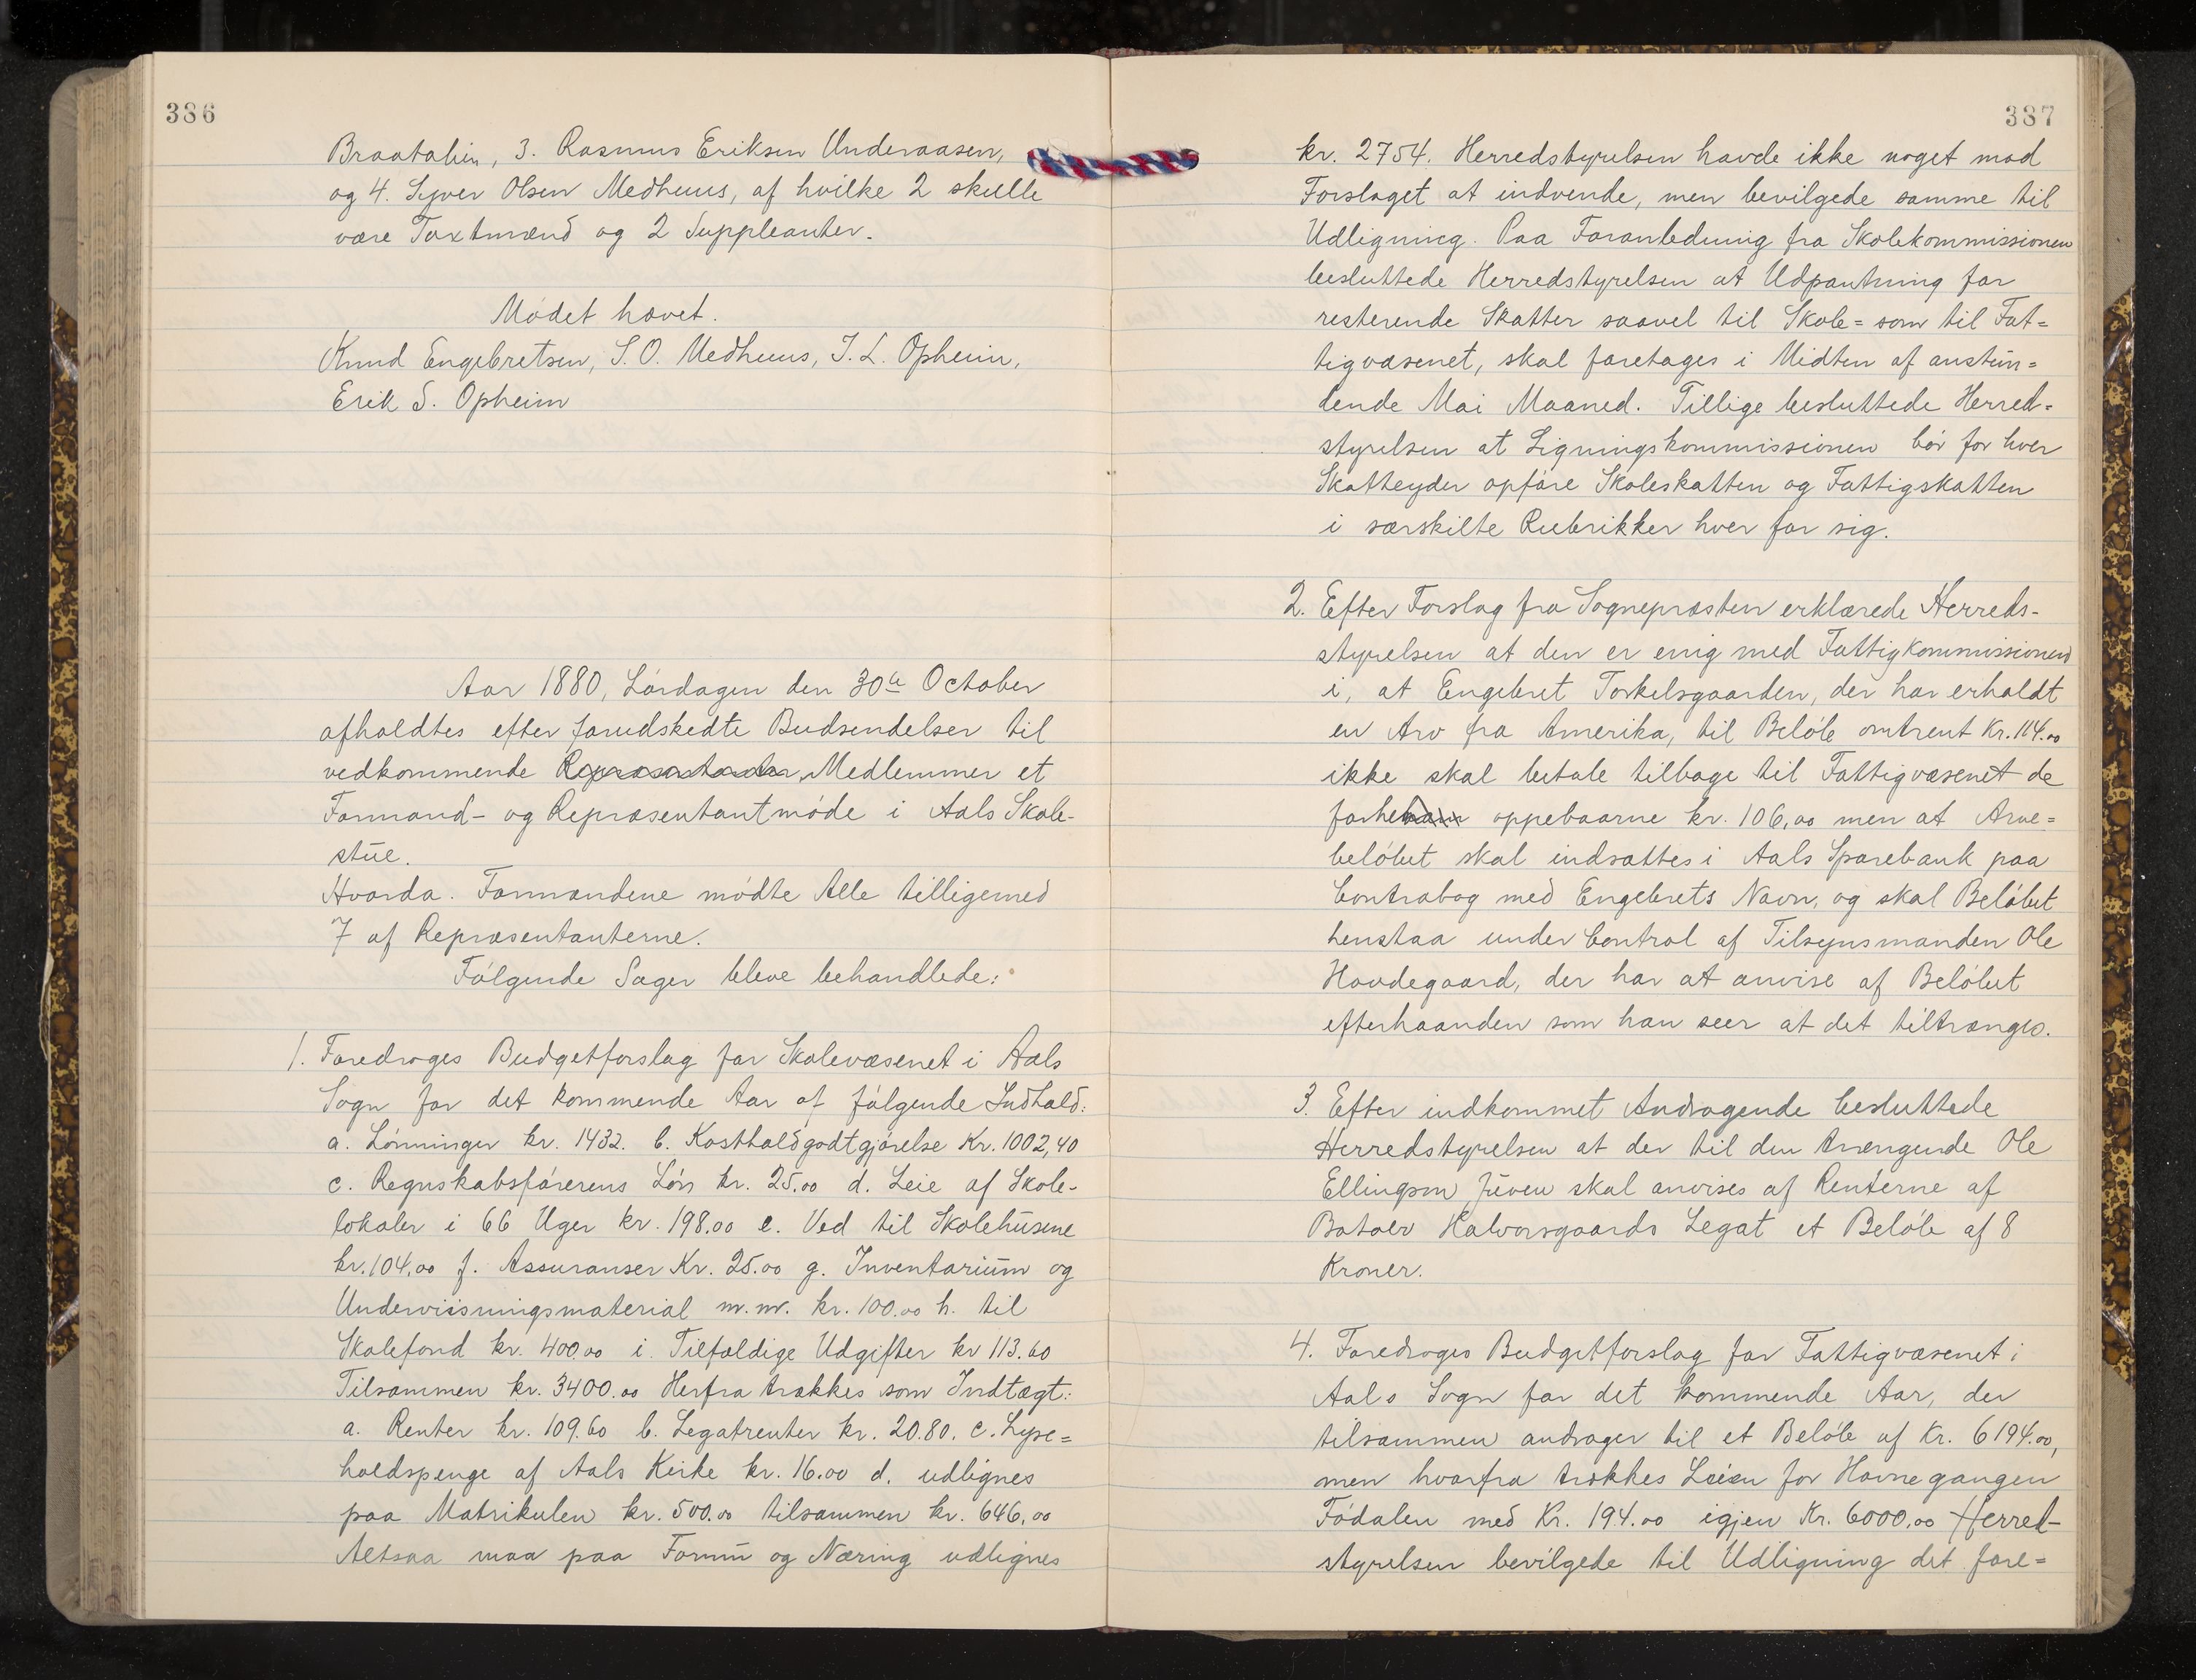 386
Braatalien, 3. Rasmus Eriksen Underaasen,
og 4. Syver Olsen Medhuus, af hvilke 2 skulle
være Taxtmænd og 2 Suppleanter.
Mødet hævet.
Knud Engebretsen, S. O. Medhuus, T. L. Opheim,
Erik S. Opheim
Aar 1880, Lørdagen den 30te October
afholdtes efter forudskedte Budsendelser til
vedkommende Repræsentanter, Medlemmer et
Formand- og Repræsentantmøde i Aals Skole-
stue.
Hvorda. Formændene mødte Alle tilligemed
7 af Repræsentanterne.
Følgende Sager bleve behandlede:
1. Foredroges Budgetforslag for Skolevæsenet i Aals
Sogn for det kommende Aar af følgende Indhold:
a. Lønninger kr. 1432. b. Kostholdgodtgjørelse Kr. 1002,40
c. Regnskabsførerens Løn kr. 25.00 d. Leie af Skole-
lokaler i 66 Uger kr. 198.00 e. Ved til Skolehusene
kr. 104,00 f. Assuranser Kr. 25.00 g. Inventarium og
Underviisningsmaterial m.m. kr. 100.00 h. til
Skolefond kr. 400.00 i. Tilfældige Udgifter kr 113.60
Tilsammen kr. 3400.00 Herfra trækkes som Indtægt:
a. Renter kr. 109.60 b. Legatrenter kr. 20.80. c. Lyse=
holdspenge af Aals Kirke kr. 16.00 d. udlignes
paa Matrikulen kr. 500.00 tilsammen kr. 646,00
Altsaa maa paa Formu og Næring udlignes
387
kr. 2754. Herredstyrelsen havde ikke noget mod
Forslaget at indvende, men bevilgede samme til
Udligning. Paa Foranledning fra Skolekommissionen
besluttede Herredstyrelsen at Udpantning for
resterende Skatter saavel til Skole= som til Fat=
tigvæsenet, skal foretages i Midten af anstun=
dende Mai Maaned. Tillige besluttede Herred=
styrelsen at Ligningskommissionen bør for hver
Skatteyder opføre Skoleskatten og Fattigskatten
i særskilte Rubrikker hver for sig.
2. Efter Forslag fra Sognepræsten erklærede Herreds-
styrelsen at den er enig med Fattigkommissionen
i, at Engebret Torkelsgaarden, der har erholdt
en Arv fra Amerika, til Beløb omtrent Kr. 114.00
ikke skal betale tilbage til Fattigvæsenet de
forhen oppebaarne kr. 106,00 men at Arve=
beløbet skal indsættes i Aals Sparebank paa
Contrabog med Engebrets Navn, og skal Beløbet
henstaa under Control af Tilsynsmanden Ole
Hovdegaard, der har at anvise af Beløbet
efterhaanden som han seer at det tiltrænges.
3. Efter indkommet Andragende besluttede
Herredstyrelsen at der til den trængende Ole
Ellingsen Juven skal anvises af Renterne af
Botolv Halvorsgaards Legat et Beløb af 8
Kroner.
4. Foredroges Budgetforslag for Fattigvæsenet i
Aals Sogn for det kommende Aar, der
tilsammen andrager til et Beløb af Kr. 6194.00,
men hvorfra trækkes Leien for Havnegangen
Fødalen med Kr. 194.00 igjen Kr. 6000,00 Herred-
styrelsen bevilgede til Udligning det fore=